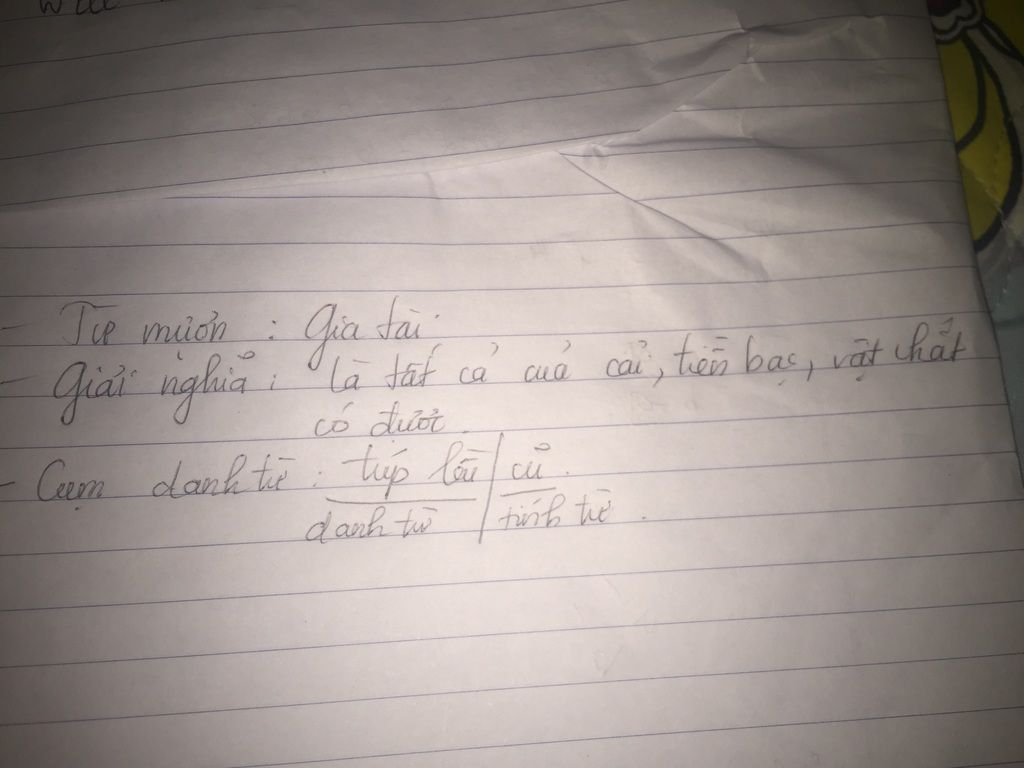 - Từ mượn : Gia tài
- Giải nghĩa : là tất cả của cải, tiền bạc, vật chất
có được.
- Cụm danh từ : túp lều | cũ.
danh từ | tính từ.